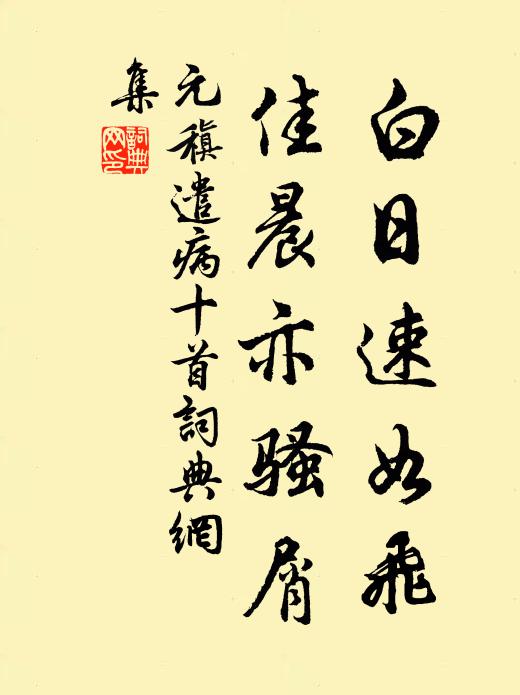 白日速如飛
佳晨亦騷屑
元稹遣病十首詞典網
集
詞典
网印